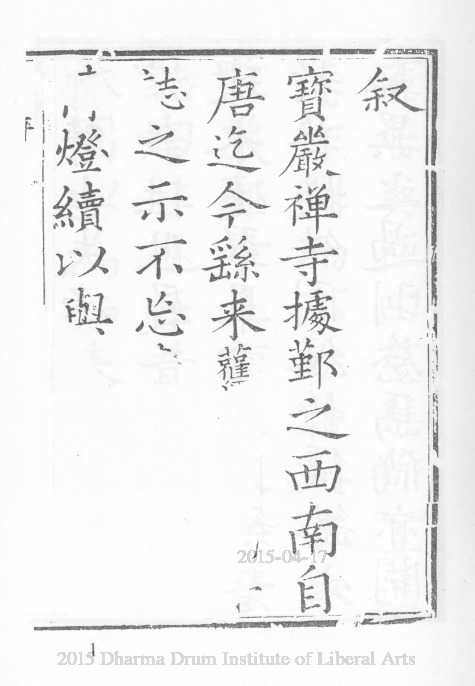 叙
寶嚴禅寺據鄞之西南自
唐迄今繇来
志之示不忘
燈續以與
2015-04-17
2015 Dharma Drum Institute of Liberal Arts